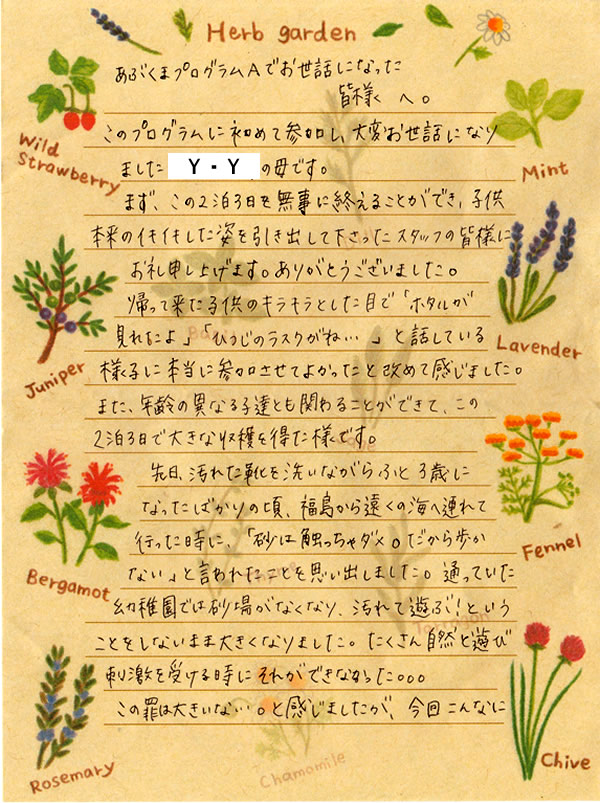 Herb garden
あぶくまプログラムAでお世話になった
皆様 へ。
このプログラムに初めて参加し、大変お世話になり
ました Y・Y の母です。
まず、この2泊3日を無事に終えることができ、子供
本来のイキイキした姿を引き出して下さったスタッフの皆様に
お礼申し上げます。ありがとうございました。
帰って来た子供のキラキラとした目で「ホタルが
見れたよ」「ひつじのラスクがね…」と話している
様子に本当に参加させてよかったと改めて感じました。
また、年齢の異なる子達とも関わることができて、この
2泊3日で大きな収穫を得た様です。
先日、汚れた靴を洗いながらふと3歳に
なったばかりの頃、福島から遠くの海へ連れて
行った時に、「砂は触っちゃダメ。だから歩か
ない」と言われたことを思い出しました。通っていた
幼稚園では砂場がなくなり、汚れて遊ぶ!という
ことをしないまま大きくなりました。たくさん自然と遊び
刺激を受ける時にそれができなかった。。。
この罪は大きいな…。と感じましたが、今回こんなに
Wild Strawberry
Mint
Juniper
Lavender
Bergamot
Fennel
Rosemary
Chamomile
Chive